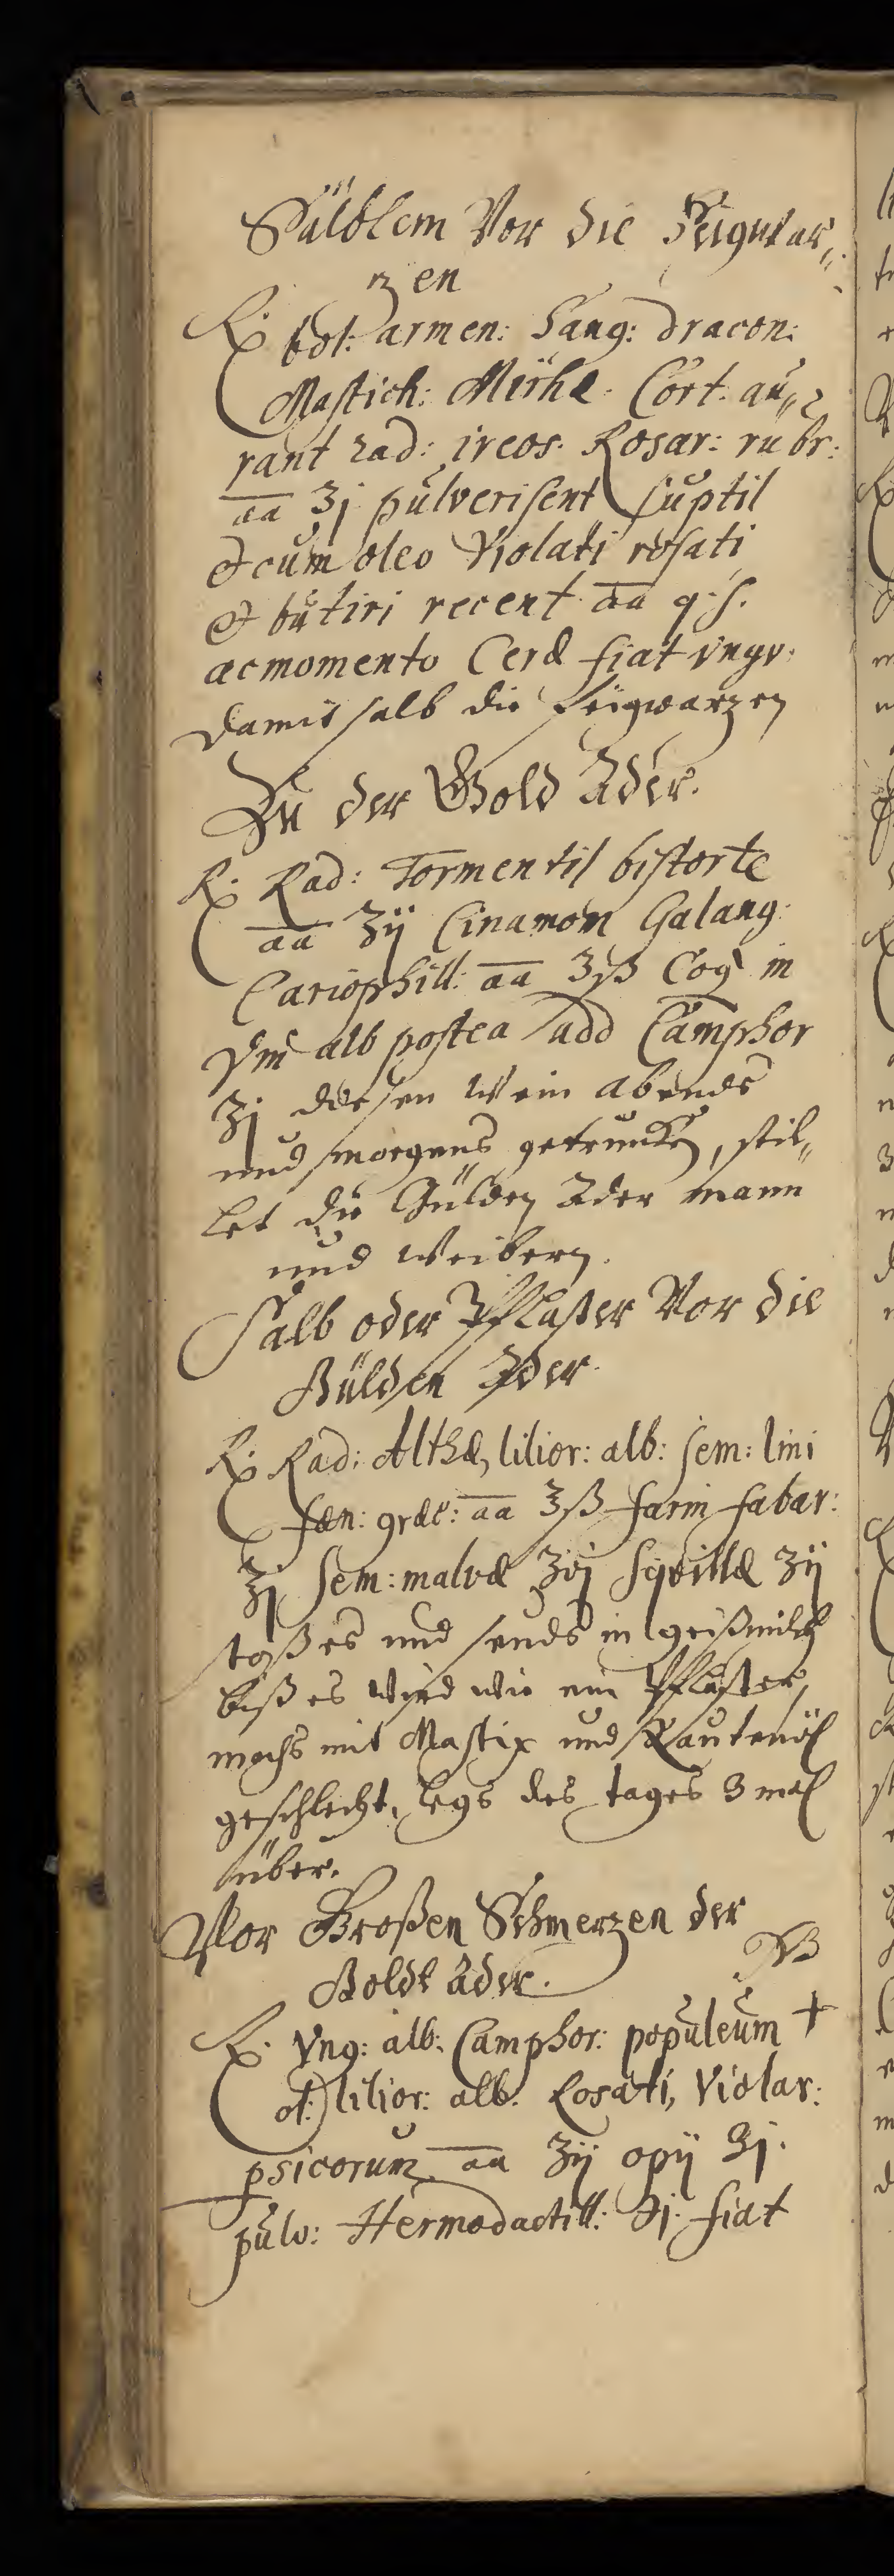 Sälblem Vor die Feigwar„
zen
℞. bol: armen: Sang: dracon:
Mastich: Mirhe. Cort. au„
rant rad: ireos. Rosar: rubr:
aa ʒj pulverisent suptil
et cum oleo Violati rosati
et butiri recent aa q. s.
ac momento Ceræ fiat vngv:
damit salb die feigwarzen
Zu der Gold Ader.
℞. Rad: Tormentil bistorte
aa ʒij Cinamom Galang:
Cariophill: aa ʒß Coq in
Vin alb postea add Camphor
ʒj diesen Wein abends
und morgens getruncken, stil„
let die Gülden Ader mann
und Weibern.
Salb oder Pflaster Vor die
Gülden Ader.
℞. Rad: Althæ, lilior: alb: sem: lini
fæn: græc: aa ʒß farin fabar:
ʒj sem: malvæ ʒvj Sqvillæ ʒij
stoß es und seuds in geißmilch
biß es wird wie ein Pflaster,
machs mit Mastix und Rautenöl
geschlecht, legs des tages 3 mal
über.
Vor Großen Schmerzen der
Goldt Ader. NB
℞. Vng: alb: Camphor: populeum +
ol: lilior: alb: Rosati, Violar:
psicorum aa ʒij opij ℈j.
pulv: Hermodactill: ℈j. fiat